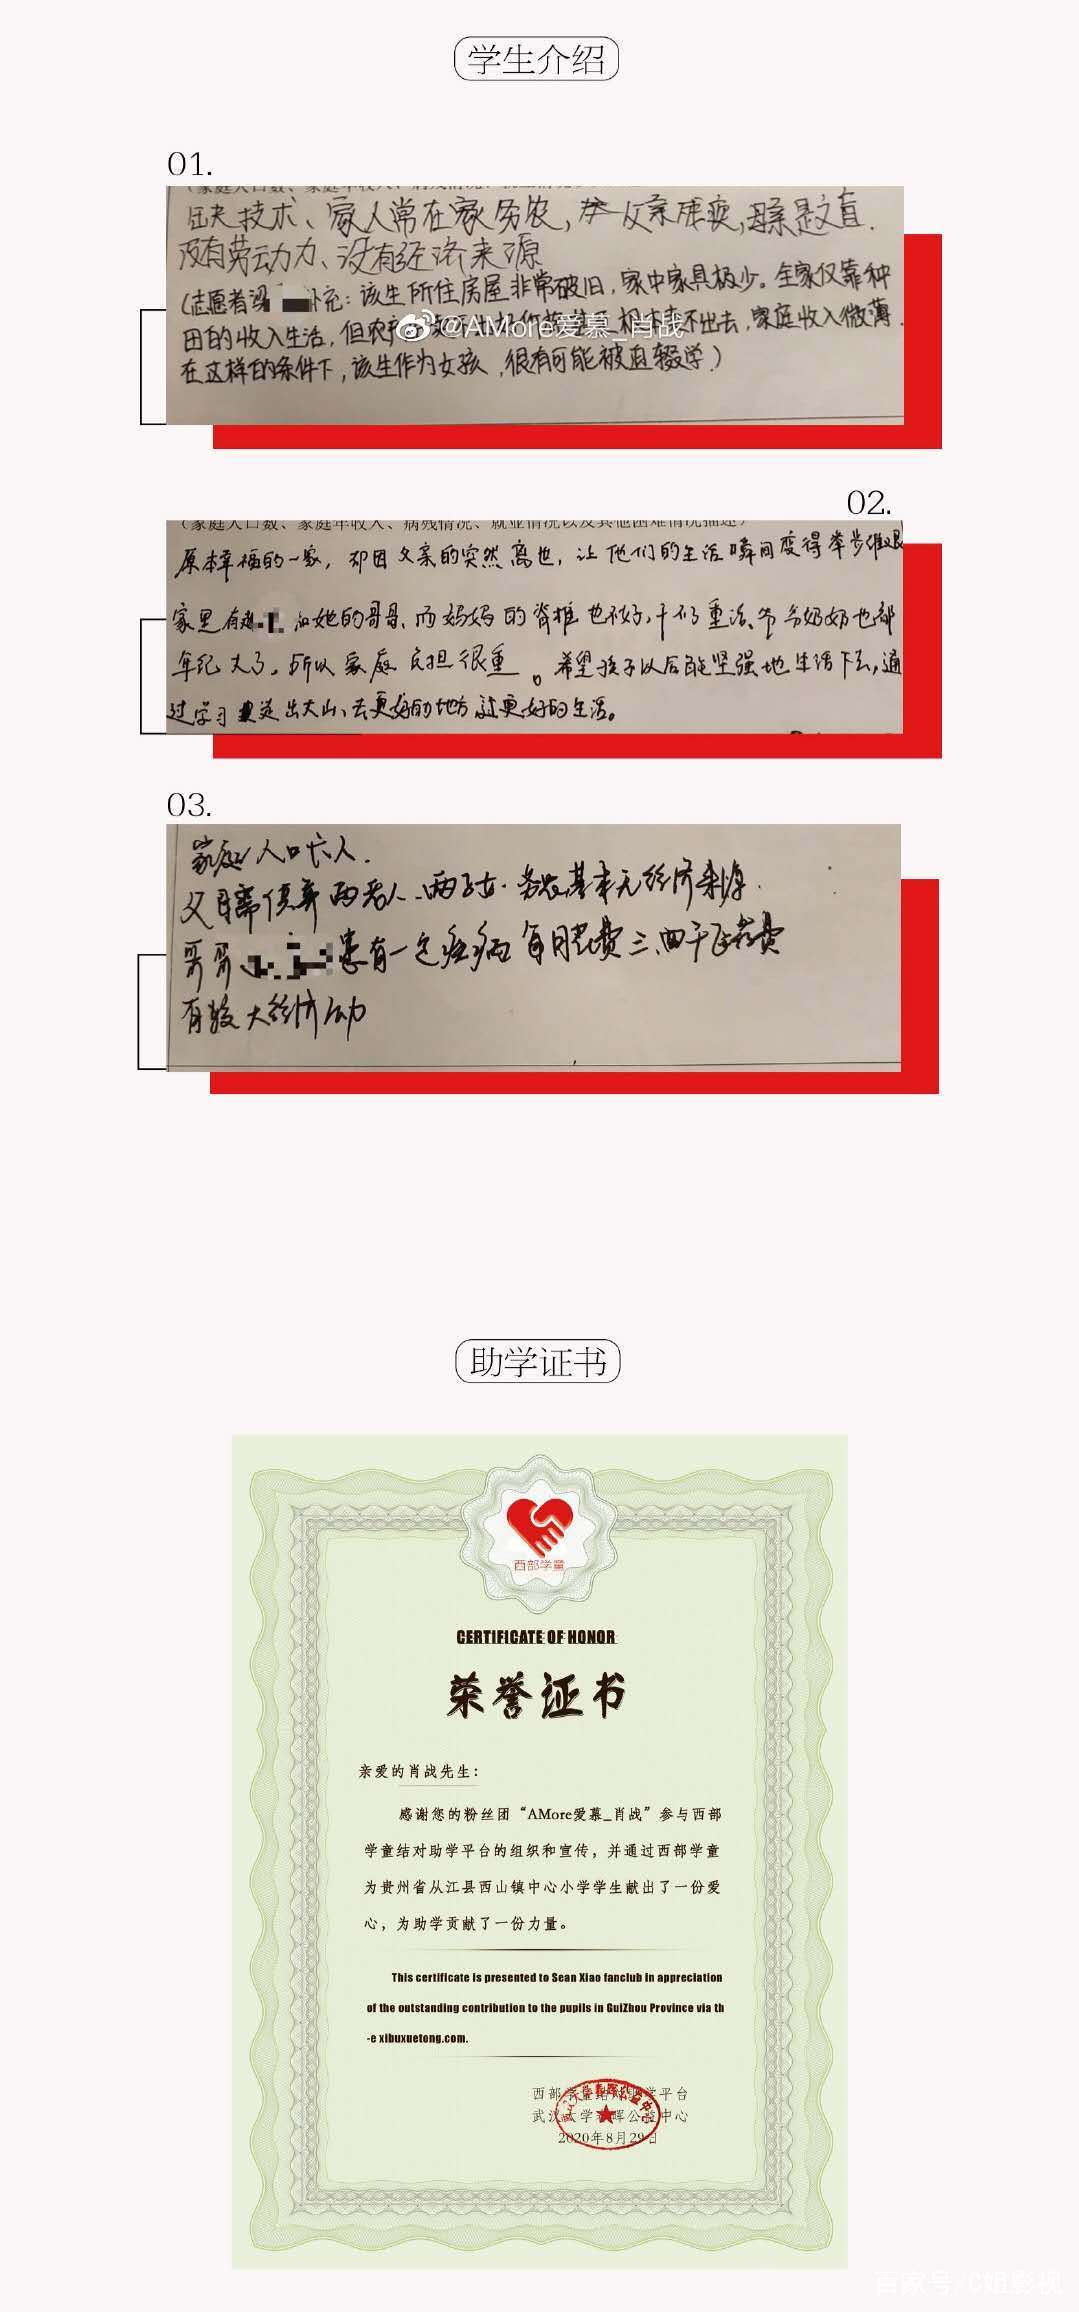 学生介绍
01.
缺技术、家人常在家务农,父亲残疾,母亲是文盲.
没有劳动力、没有经济来源
(志愿者梁 补充:该生所住房屋非常破旧,家中家具极少。全家仅靠种
田的收入生活,但农 不出去,家庭收入微薄.
在这样的条件下,该生作为女孩,很有可能被迫辍学)
@AMore爱慕_肖战
02.
(家庭人口数、家庭年收入、病残情况、就业情况以及其他困难情况描述)
原本幸福的一家,却因父亲的突然离世,让他们的生活瞬间变得举步维艰
家里有 和她的哥哥、而妈妈的脊椎也不好,干不了重活、爷爷奶奶也都
年纪大了。所以家庭负担很重。希望孩子以后能坚强地生活下去,通
过学习走出大山、去更好的地方,过更好的生活。
03.
家庭人口六人.
父母需供养两老人、两子女.务农基本无经济来源.
哥哥 患有一定疾病 每月花费三、四千医药费
有较大经济压力
助学证书
西部学童
CERTIFICATE OF HONOR
荣誉证书
亲爱的肖战先生:
感谢您的粉丝团“AMore爱慕_肖战”参与西部
学童结对助学平台的组织和宣传,并通过西部学童
为贵州省从江县西山镇中心小学学生献出了一份爱
心,为助学贡献了一份力量。
This certificate is presented to Sean Xiao fanclub in appreciation
of the outstanding contribution to the pupils in GuiZhou Province via th
-e xibuxuetong.com.
西部学童结对助学平台
武汉大学春晖公益中心
2020年8月29日
百家号/C姐影视